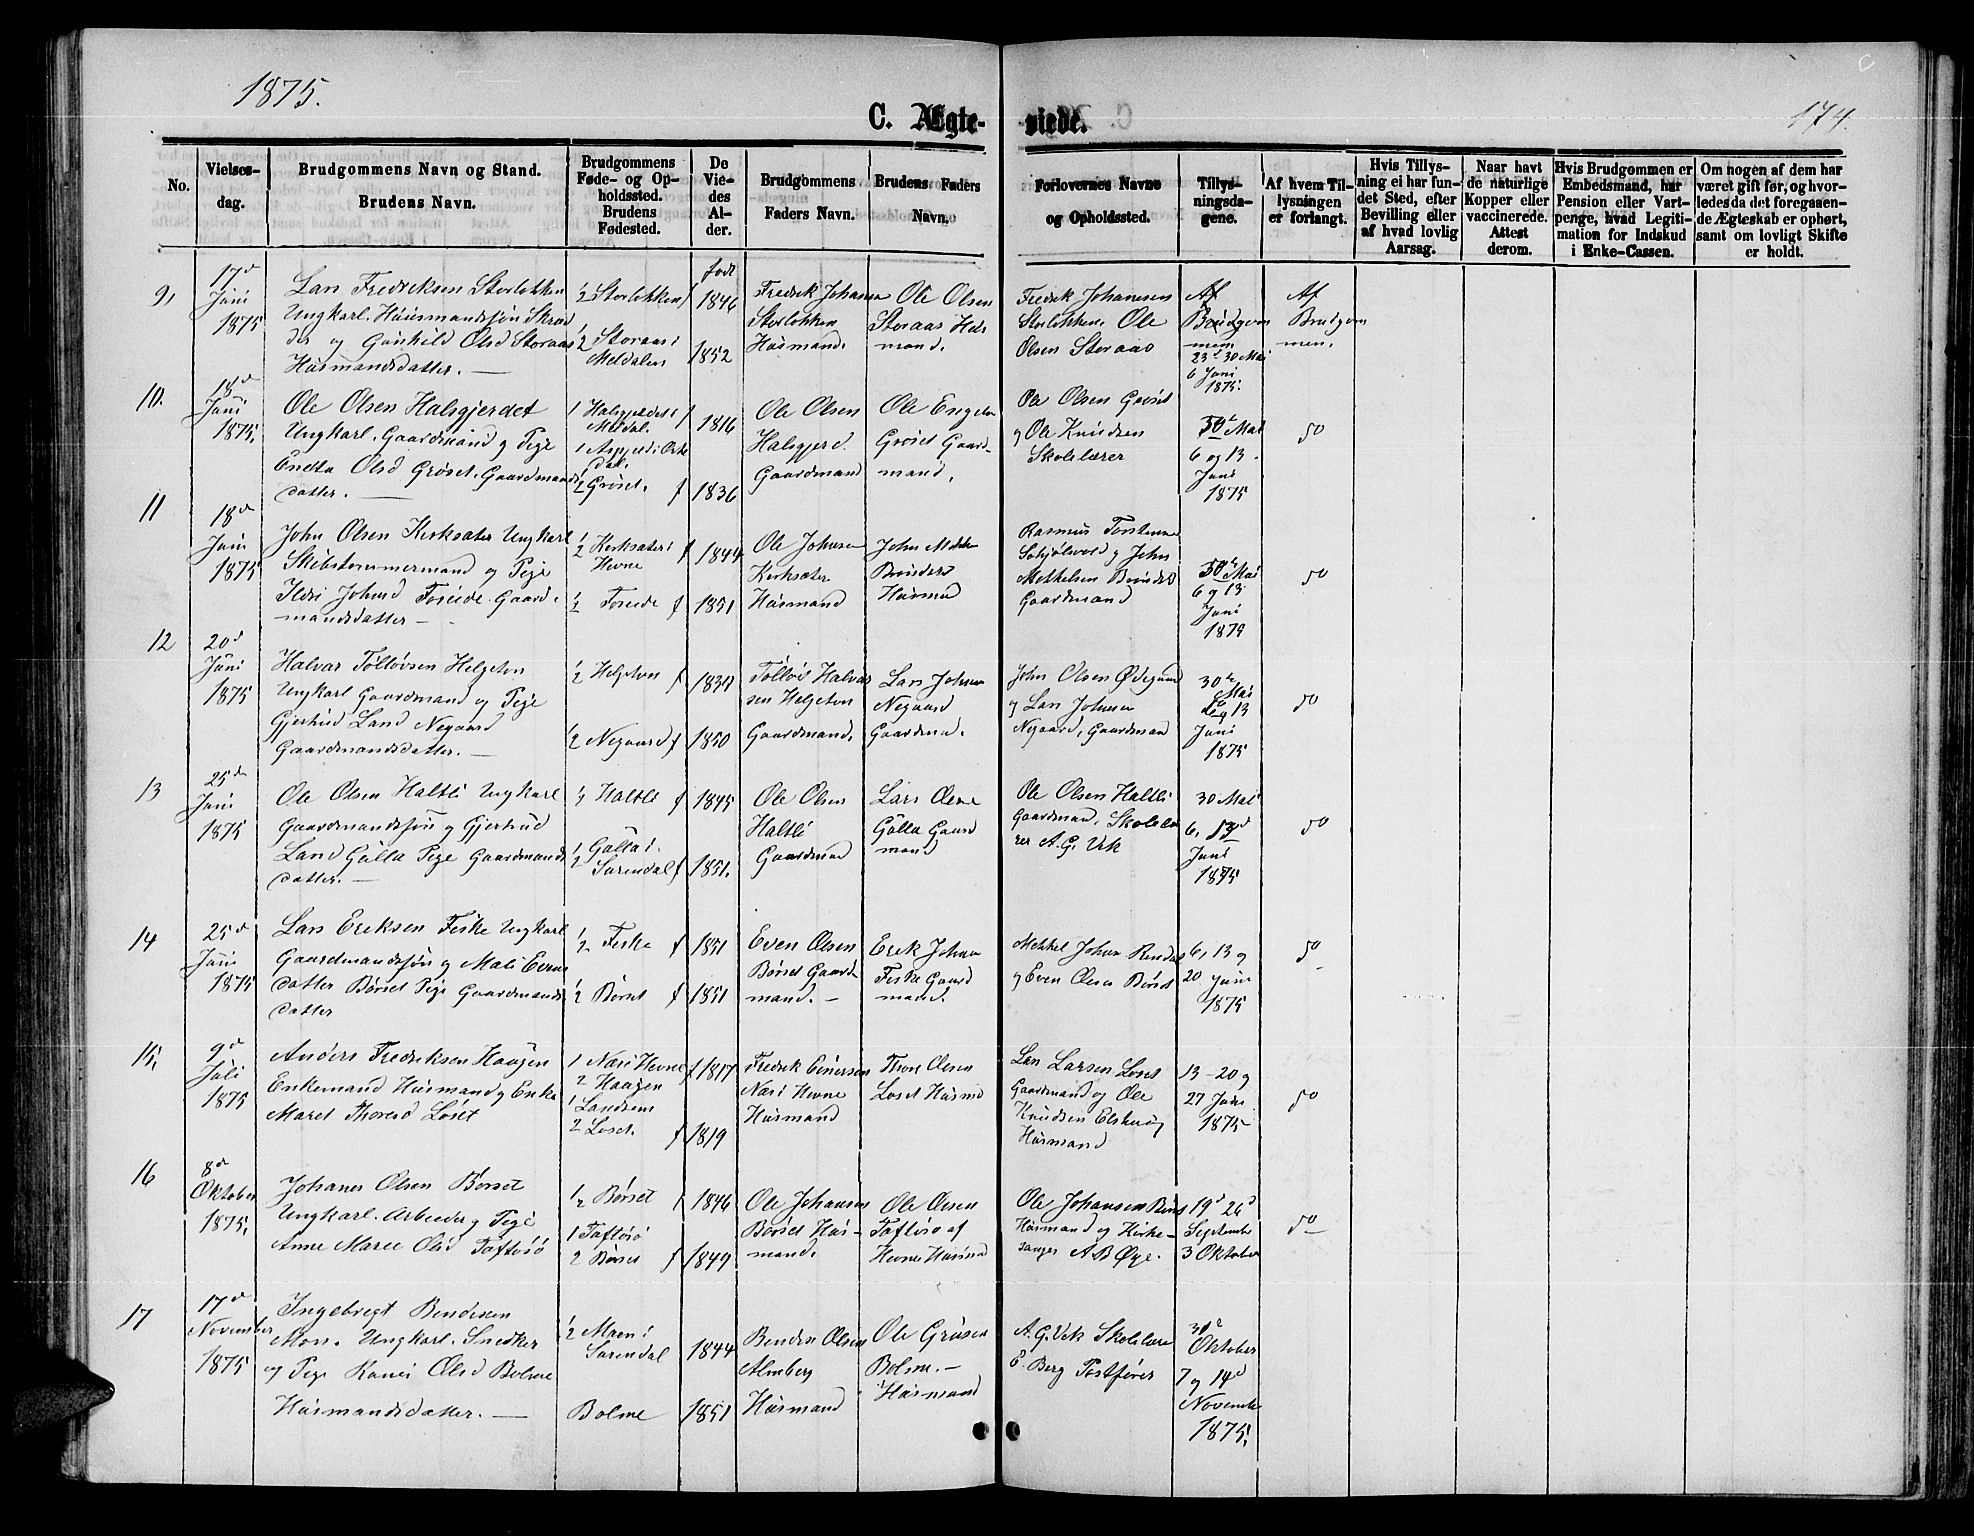 1875.
C. Ægte-
viede.
174.
No.
Vielses-
dag.
Brudgommens Navn og Stand.
Brudens Navn.
Brudgommens
Føde- og Op-
holdssted.
Brudens
Fødested.
De
Vie-
des
Al-
der.
Brudgommens
Faders Navn.
Brudens Faders
Navn.
Forlovernes Navne
og Opholdssted.
Tillys-
ningsda-
gene.
Af hvem Til-
lysningen
er forlangt.
Hvis Tillys-
ning ei har fun-
det Sted, efter
Bevilling eller
af hvad lovlig
Aarsag.
Naar havt
de naturlige
Kopper eller
vaccinerede.
Attest
derom.
Hvis Brudgommen er
Embedsmand, har
Pension eller Vart-
penge, hvad Legiti-
mation for Indskud
i Enke-Cassen.
Om nogen af dem har
været gift før, og hvor-
ledes da det foregaaen-
de Ægteskab er ophørt,
samt om lovligt Skifte
er holdt.
9,
17d
Juni
1875
Lars Fredriksen Storløkken
Ungkarl. Huusmandssøn Skræd
der og Gunhild Olsd Storaas
Husmandsdatter. —
1/2 Storløkken f
1/2 Storaas i
Meldalen
født
1846
1852
Fredrik Johansen
Storløkken
Husmand.
Ole Olsen
Storaas Hus
mand.
Fredrik Johansen
Storløkken. Ole
Olsen Storaas
Af
Brudgom
men
23d 30 Mai
6 Juni
1875.
Af
Brudgom
men.
10.
18d
Juni
1875,
Ole Olsen Halsgjerdet
Ungkarl. Gaardmand og Pige
Olsd Grøset. Gaardmands
datter. —
1 Halsgjerdet i f
Meldal.
2 Grøset. f
1816
1836
Ole Olsen
Halsgjerd
Gaardmand
Ole
Grøset Gaard-
mand.
Ole Olsen Grøset
og Ole Knudsen
Skolelærer
30te Mai
6 og 13
Juni
1875
do
11
18d
Juni
1875
John Olsen Kirksæter Ungkarl
Skibstømmermand og Pige
Ildri Johnsd Gaard-
mandsdatter —
1/2 Kirksæter i f
Hevne
1844
1851
Ole Johnsen
Kirksæter
Husmand
John
Husmand
Rasmus
og John
Gaardmand
30te Mai
6 og 13
Juni
1875
do
12
20d
Juni
1875
Halvar Tølløvsen Helgeton
Ungkarl Gaardmand og Pige
Gjertrud Larsd Negaard
Gaardmandsdatter. —
1/2 Helgeton f
1/2 Negaard f
1850
Tølløv Halvar
sen Helgeton
Gaardmand.
Lars Johnsen
Negaard
Gaardmand.
John Olsen Ødegaard
og Lars Johnsen
Negaard, Gaardmand
30te
Mai
6 og 13
Juni
1875
do
13
25de
Juni
1875
Ole Olsen Haltli Ungkarl
Gaardmandssøn og Gjertrud
Larsd Gulla Pige Gaardmands
datter. —
1/2 Haltli f
1/2 Gulla i
Surendal f
1845
1851.
Ole Olsen
Haltli
Gaardmand
Lars
Gulla Gaard
mand
Ole Olsen Haltli
Gaardmand, Skolelæ
rer A. G. Vik
30 Mai
6, 13d
Juni
1875
do
14
25d
Juni
1875
Lars Eriksen Fiske Ungkarl
Gaardmandssøn og Mali Evens
datter Børset Pige Gaardmands
datter
1/2 Fiske f
1/2 Børset f
1851
1851
Even Olsen
Børset Gaard-
mand. —
Erik Johnsen
Fiske Gaard
mand.
Mekkel Johnsen
og Even Olsen Børset
6, 13 og
20 Juni
1875
do
15,
9d
Juli
1875
Anders Fredriksen Haugen
Enkemand Husmand og Enke
Maret Thoresd Løset
1 Næs i Hevne f
2 Haugen
1 Landsem
2 Løset. f
1817
1819
Fredrik
Næs i Hevne
Husmand
Thore Olsen
Løset Husmd
Lars Larsen Løset
Gaardmand og Ole
Knudsen
Husmand
13 - 20 og
27 Juni
1875
do
16
8d
Oktober
1875,
Johanes Olsen Børset
Ungkarl. Arbeider og Pige
Anne Marie Olsd Taftøsø
1/2 Børset f
1 Taftøsø
2 Børset f
1846
1849
Ole Johansen
Børset Hus-
mand.
Ole Olsen
Taftøsø af
Hevne Husmd
Ole Johansen Børset
Husmand og Kirke-
sanger A B Øye.
19d 26d
September
3 Oktober
do
17
17d
November
1875
Ingebrigt Bendixsen
Moen. Ungkarl. Snedker
og Pige Kari Olsd Bolme
Husmandsdatter. —
1/2 Moen i
Surendal
Bolme
1844
1851
Bendix Olsen
Almberg
Husmand
Ole
Bolme. —
Husmand
A. G. Vik Skolelære
E. Berg Postfører
31te
Oktober
7 og 14d
November
1875,